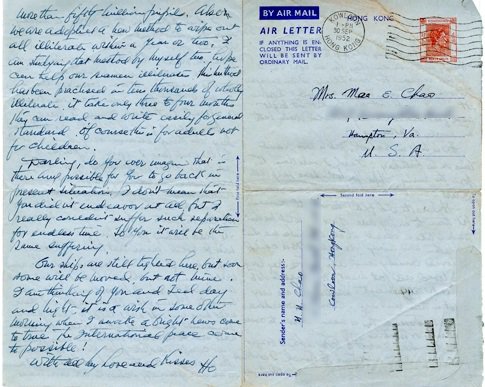 more than fifty million pupils. Also
we are adopting a new method to wipe out
all illiterate within a year or two. I
am studying that method by myself too, hope
can help our seamen illiterate. This method
has been practised in ten thousands of wholly
illiterate it take only three to four months
they can read and write easily for general
standard. Of course this is for adults not
for children.
Darling, do you ever imagine that is
there any possible for you to go back in
present situation. I don't mean that
you didn't endeavor at all, but I
really couldn't suffer such separation
for endless time. So you it will be the
same suffering.
Our ships are still tighted here, but soon
some will be moved but not mine.
I am thinking of you and Leal day
and night. it is a wish in some other
morning when I awake a bright news come
to true the International peace come
to possible!
With all my love and Kisses Ho
BY AIR MAIL
HONG KONG
AIR LETTER
IF ANYTHING IS EN-
CLOSED THIS LETTER
WILL BE SENT BY
ORDINARY MAIL.
KOWLOON
1 - PM
30 SEP
1952
HONG KONG
Mrs. Mae E. Chao
Hampton, Va.
U. S. A.
Second fold here
Sender's name and address:-
H. H. Chao
Kowloon Hongkong
To open cut here